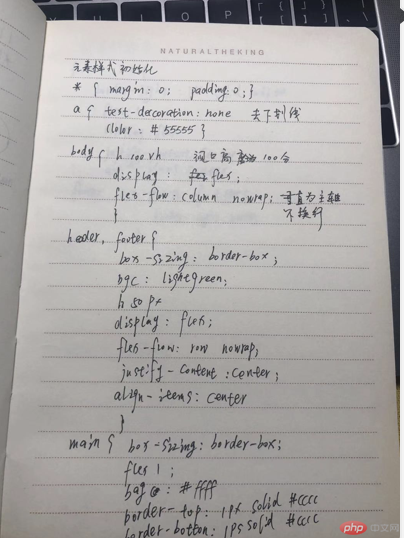 NATURALTHEKING
元素样式初始化
* { margin: 0; padding: 0; }
a { text-decoration: none 去下划线
Color: # 55555 }
body { h 100 vh 视口高度为100分
display: flex;
flex-flow: column nowrap; 垂直为主轴
不换行
}
header, footer {
box-sizing: border-box;
bgc: lightgreen;
h 50 px
display: flex;
flex-flow: row nowrap;
justify-content: center;
align-items: center
}
main { box-sizing: border-box;
flex 1;
bag : # ffff
border-top: 1px solid #cccc
border-botton: 1px solid #cccc
php 中文网